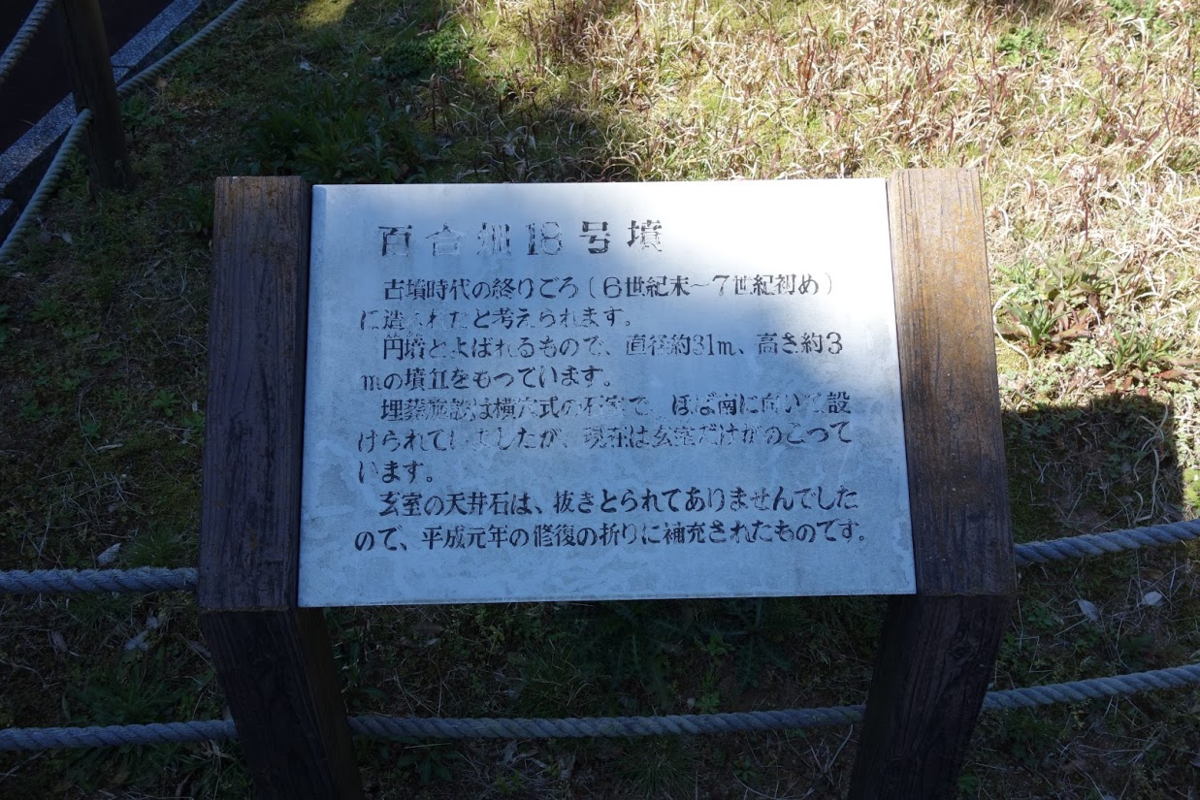 百合畑18号墳
古墳時代の終りごろ（6世紀末〜7世紀初め）
に造られたと考えられます。
円墳とよばれるもので、直径約31m、高さ約3
mの墳丘をもっています。
埋葬施設は横穴式の石室で、ほぼ南に向いて設
けられていましたが、現在は玄室だけがのこって
います。
玄室の天井石は、抜きとられてありませんでした
ので、平成元年の修復の折りに補充されたものです。